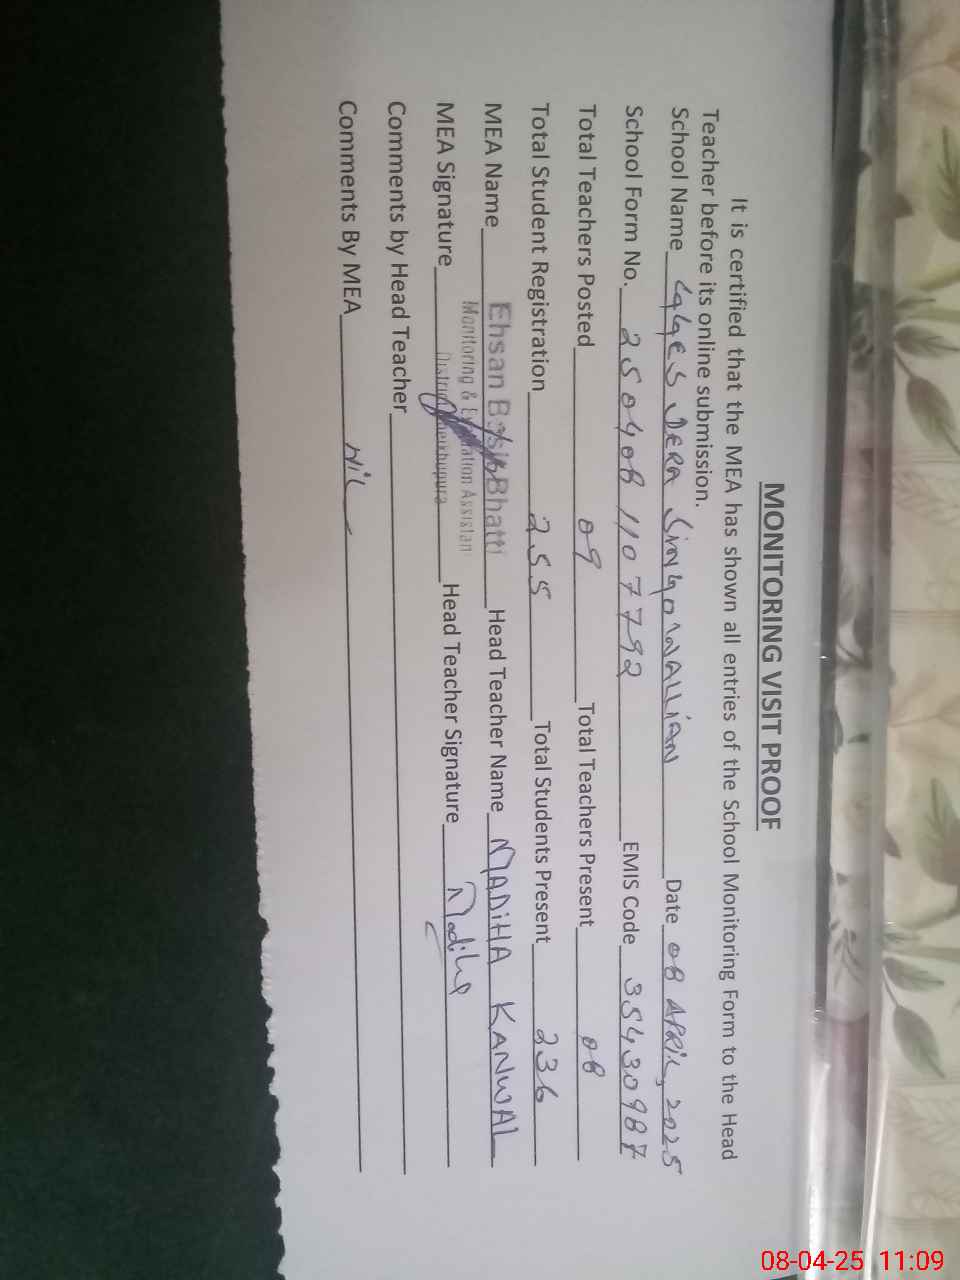 MONITORING VISIT PROOF
It is certified that the MEA has shown all entries of the School Monitoring Form to the Head
Teacher before its online submission.
School Name DERA Date 08 APRIL, 2025
School Form No. 250408 1107792 EMIS Code 35430987
Total Teachers Posted 09 Total Teachers Present 08
Total Student Registration 255 Total Students Present 236
MEA Name Ehsan Bhatti Head Teacher Name MADIHA KANWAL
Monitoring & Assistan
MEA Signature Sheikhupura Head Teacher Signature Madiha
Comments by Head Teacher
Comments By MEA NiL
08-04-25 11:09